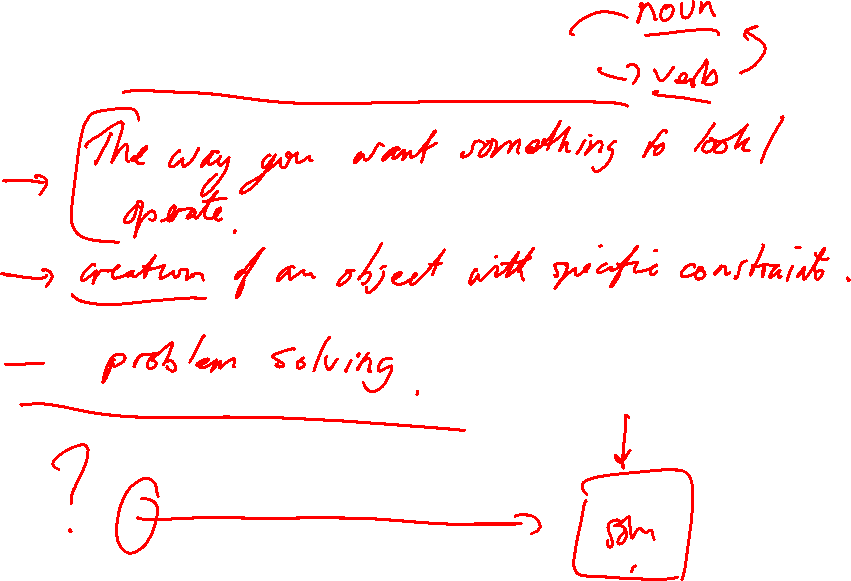 noun
verb
The way you want something to look/
operate.
creation of an object with specific constraints.
problem solving.
?
soln